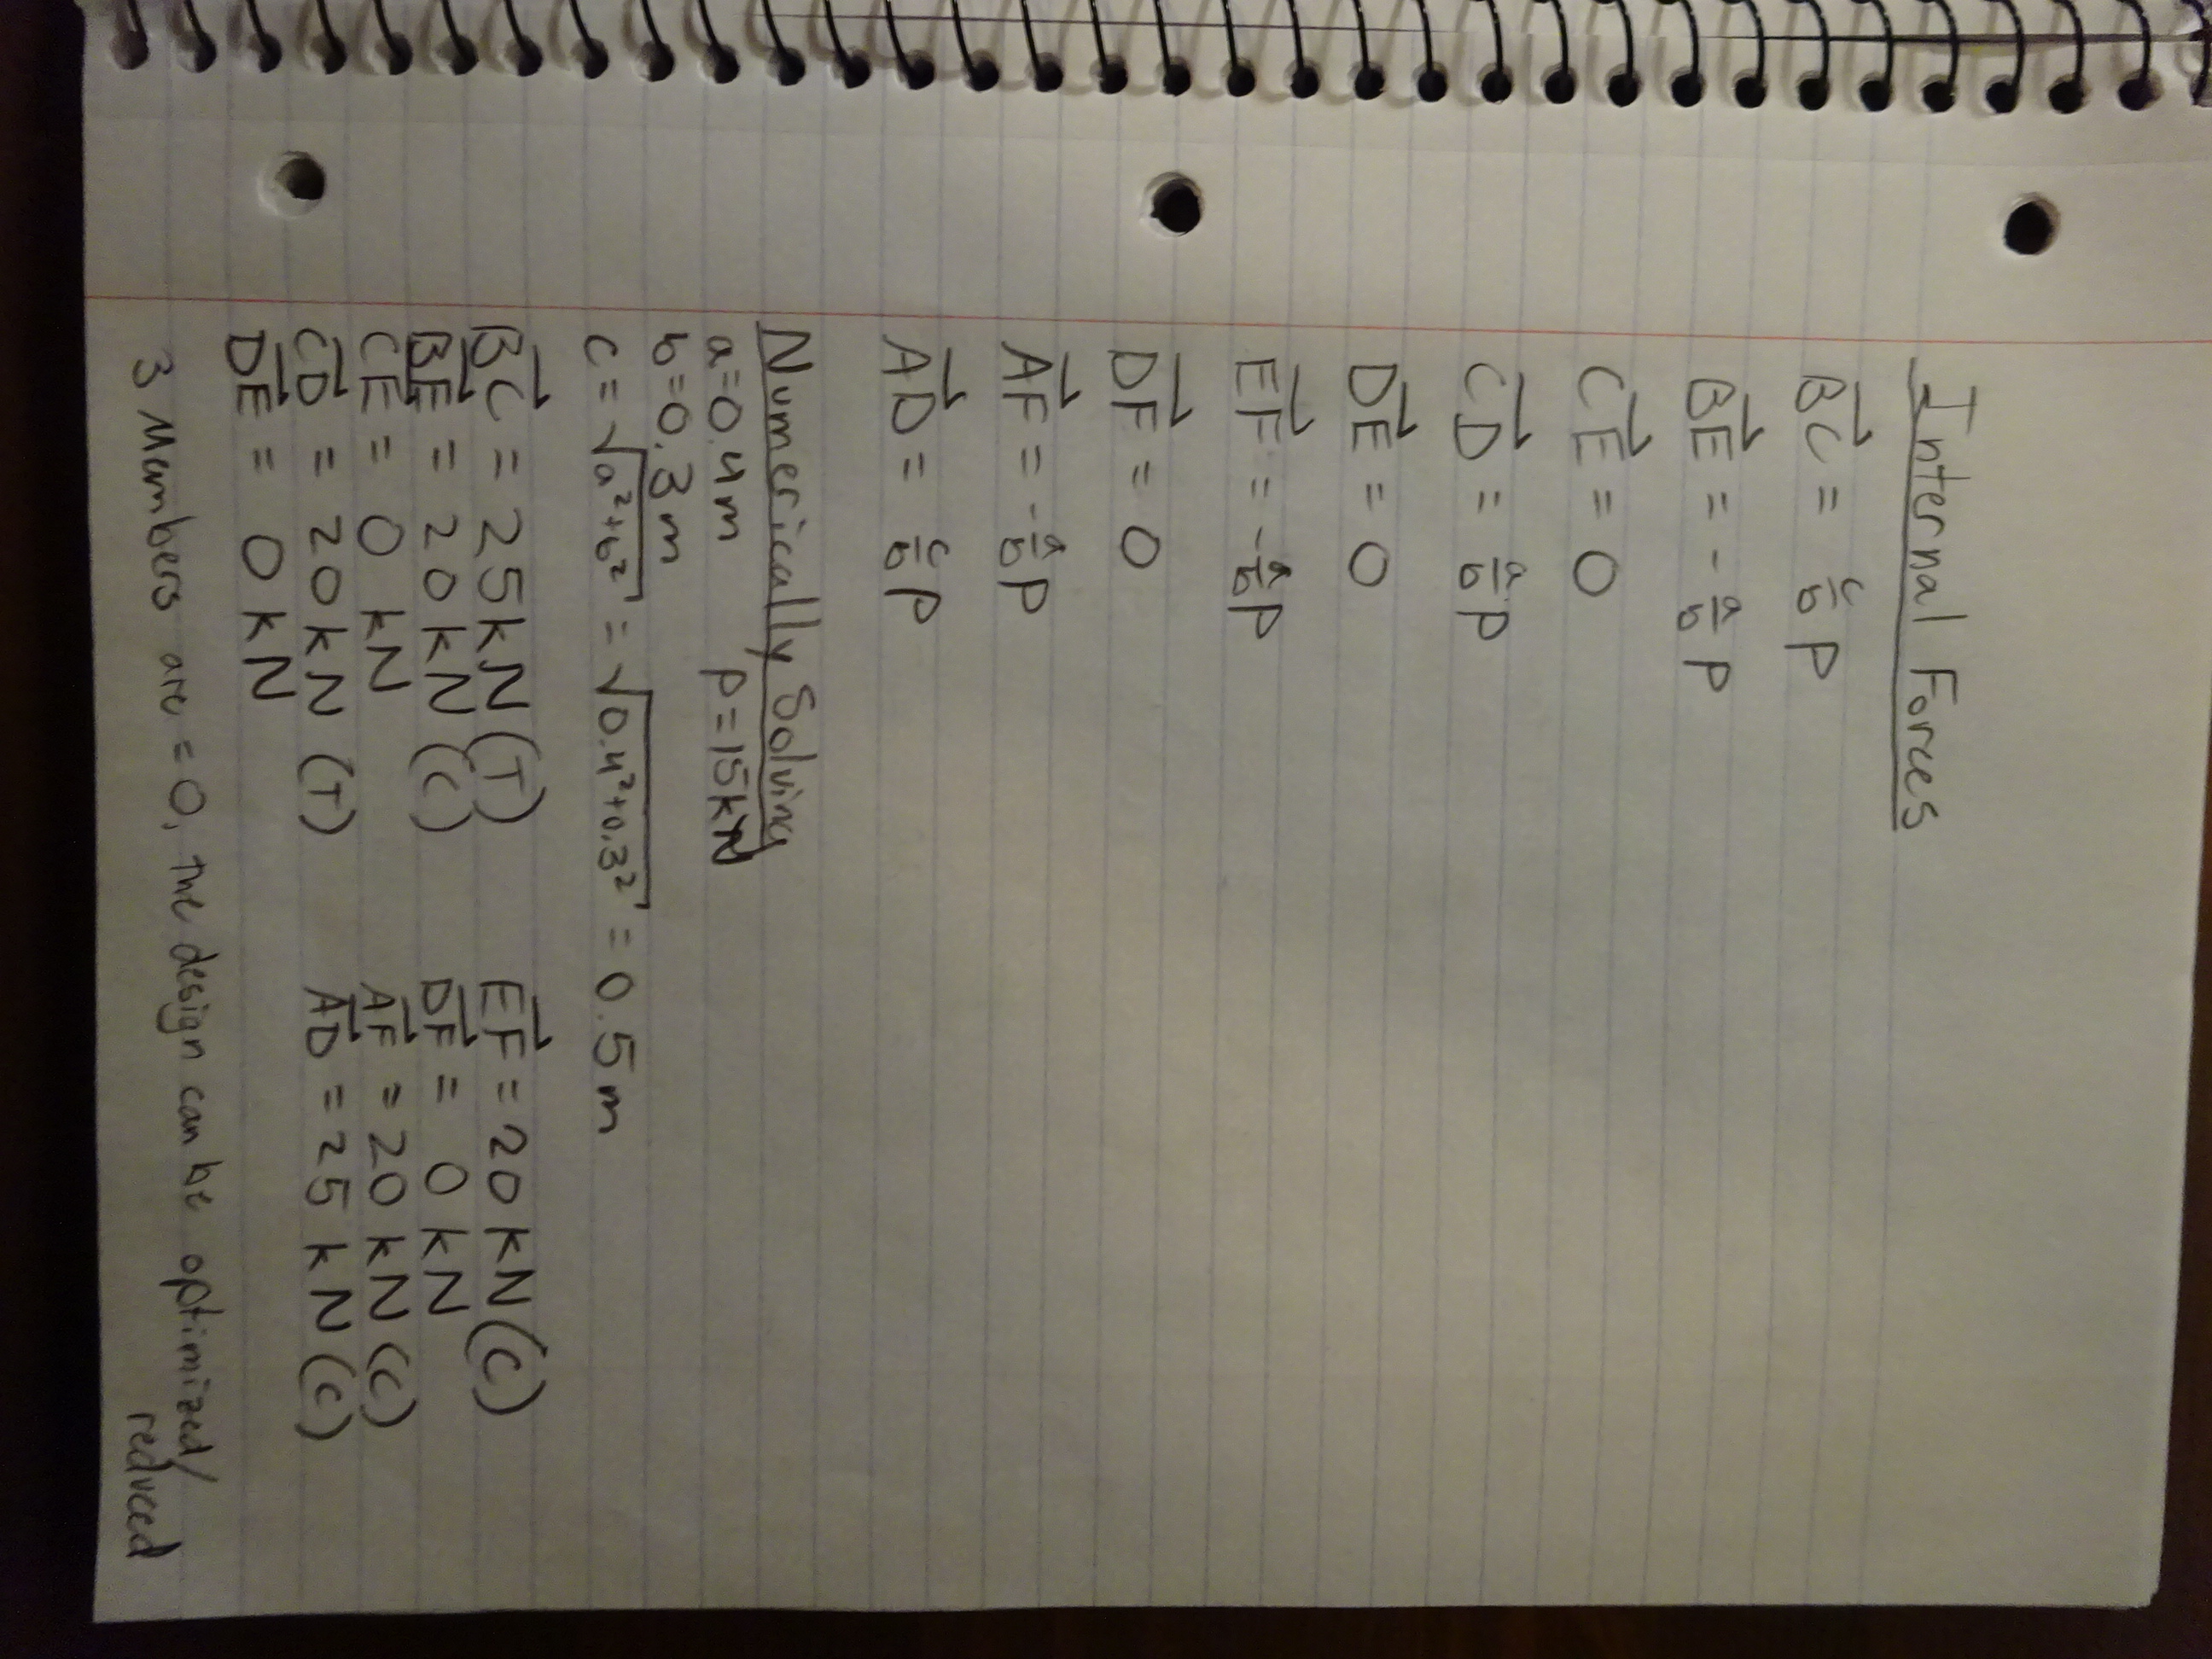 Internal Forces
BC = c/b P
BE = -a/b P
CE = 0
CD = a/b P
DE = 0
EF = -a/b P
DF = 0
AF = -a/b P
AD = c/b P
Numerically Solving
a=0.4m P=15kN
b=0.3m
c=√a²+b² = √0.4²+0.3² = 0.5m
BC = 25kN (T) EF = 20kN (C)
BE = 20kN (C) DF = 0 kN
CE = 0 kN AF = 20 kN (C)
CD = 20kN (T) AD = 25 kN (C)
DE = 0 kN
3 Members are = 0, the design can be optimized/
reduced